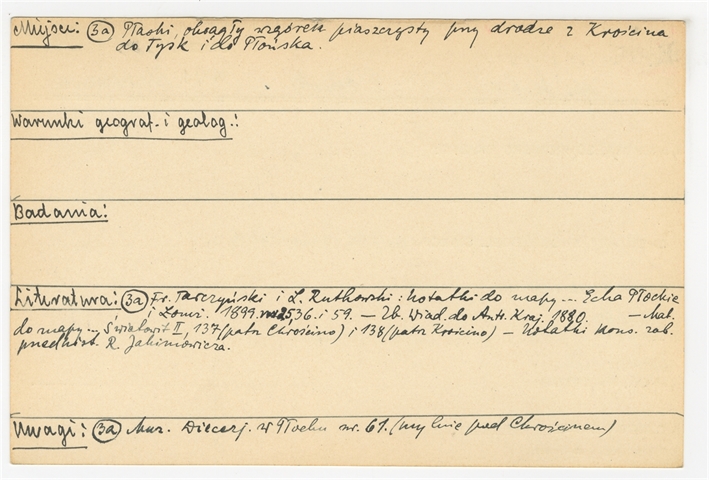 Miejsc: (3a) Płaski, okrągły wzgórek piaszczysty przy drodze z Krościna
do Tysk i do Płońska.
Warunki geograf. i geolog.:
Badania:
Literatura: (3a) Fr. Tarczyński i L. Rutkowski: Notatki do mapy... Echa Płockie
i Łomż. 1899. 36. i 59. – Zb. Wiad. do Antr. Kraj. 1880. – Mat.
do mapy... Światowit II, 137 (patrz Chrościno) i 138 (patrz Krościno) – Notatki kons. zab.
przedhist. R. Jakimowicza.
Uwagi: (3a) Muz. Diecezj. w Płocku nr. 61. (mylnie pod Chrościnem)